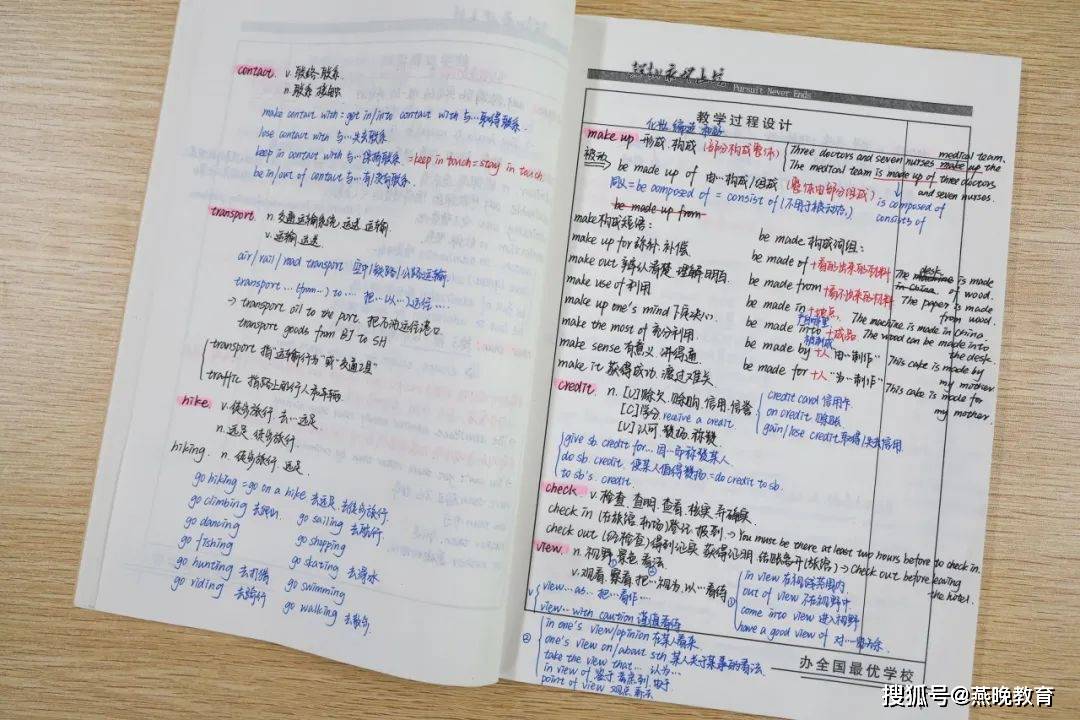 contact. v. 联络.联系.
n.联系 接触
make contact with = get in/into contact with 与…取得联系.
lose contact with 与…失去联系
keep in contact with 与…保持联系. = keep in touch = stay in touch
be in/out of contact 与…有/没有联系.
transport. n.交通运输系统,运送.运输.
v.运输.运送.
air/rail/road transport 空中/铁路/公路运输.
transport…(from…) to…. 把…从…运往…
→ transport oil to the port. 把石油运往港口.
transport goods from BJ to SH
transport 指"运输行为"或"交通工具"
traffic 指路上的行人和车辆.
hike. v.徒步旅行.去…远足
n.远足.徒步旅行.
hiking. n.徒步旅行.远足.
go hiking = go on a hike 去远足.去徒步旅行.
go climbing 去爬山
go sailing 去航行.
go dancing
go shopping
go fishing
go skating 去滑冰
go hunting 去打猎
go swimming
go riding 去骑行
go walking 去散步.
Pursuit Never Ends
教学过程设计
化妆 编造 和好
make up 形成.构成 (部分构成整体)
Three doctors and seven nurses make up the medical team.
被动 be made up of 由…构成/组成 (整体由部分组成)
The medical team is made up of three doctors and seven nurses.
同义 = be composed of = consist of (不用于被动语态)
is composed of
consists of
be made up from
make 构成短语:
be made 构成词组:
make up for 弥补.补偿
be made of +看的出来的材料
The desk is made of wood.
make out 辨认清楚 理解 明白
be made from +看不出来的材料
The paper is made from wood.
make use of 利用
be made in +地点.
The machine is made in China
make up one's mind 下定决心.
be made into +成品
The wood can be made into the desk.
make the most of 充分利用
be made by +人 "由…制作"
This cake is made by my mother
make sense 有意义.讲得通
be made for +人 "为…制作"
This cake is made for my mother
make it 获得成功.渡过难关
credit. n. [U]赊欠.赊购.信用.信誉
[C]学分. receive a credit.
[U]认可.赞扬.称赞
credit card 信用卡.
on credit 赊账.
gain/lose credit 取得/失去信用
give sb. credit for… 因…即称赞某人
do sb. credit. 使某人值得赞扬 = do credit to sb.
to sb's. credit
check v.检查.查明.查看.核实.弄确实.
check in (在旅馆.机场)登记.报到. → You must be there at least two hours before to check in.
check out (经检查)得到证实 获得证明 结账离开(旅馆) → Check out before leaving the hotel.
view. n.视野.景色.看法
v.观看.察看.把…视为.以…看待
① in view 在视线范围内.
out of view 不在视野中
come into view 进入视野
have a good view of 对…
v view…as… 把…看作…
view…with caution 谨慎看待
② in one's view/opinion 在某人看来.
one's view on/about sth 某人关于某事的看法.
take the view that… 认为…
in view of 鉴于 考虑到.由于
point of view 观点.看法
办全国最优学校
搜狐号@燕晚教育